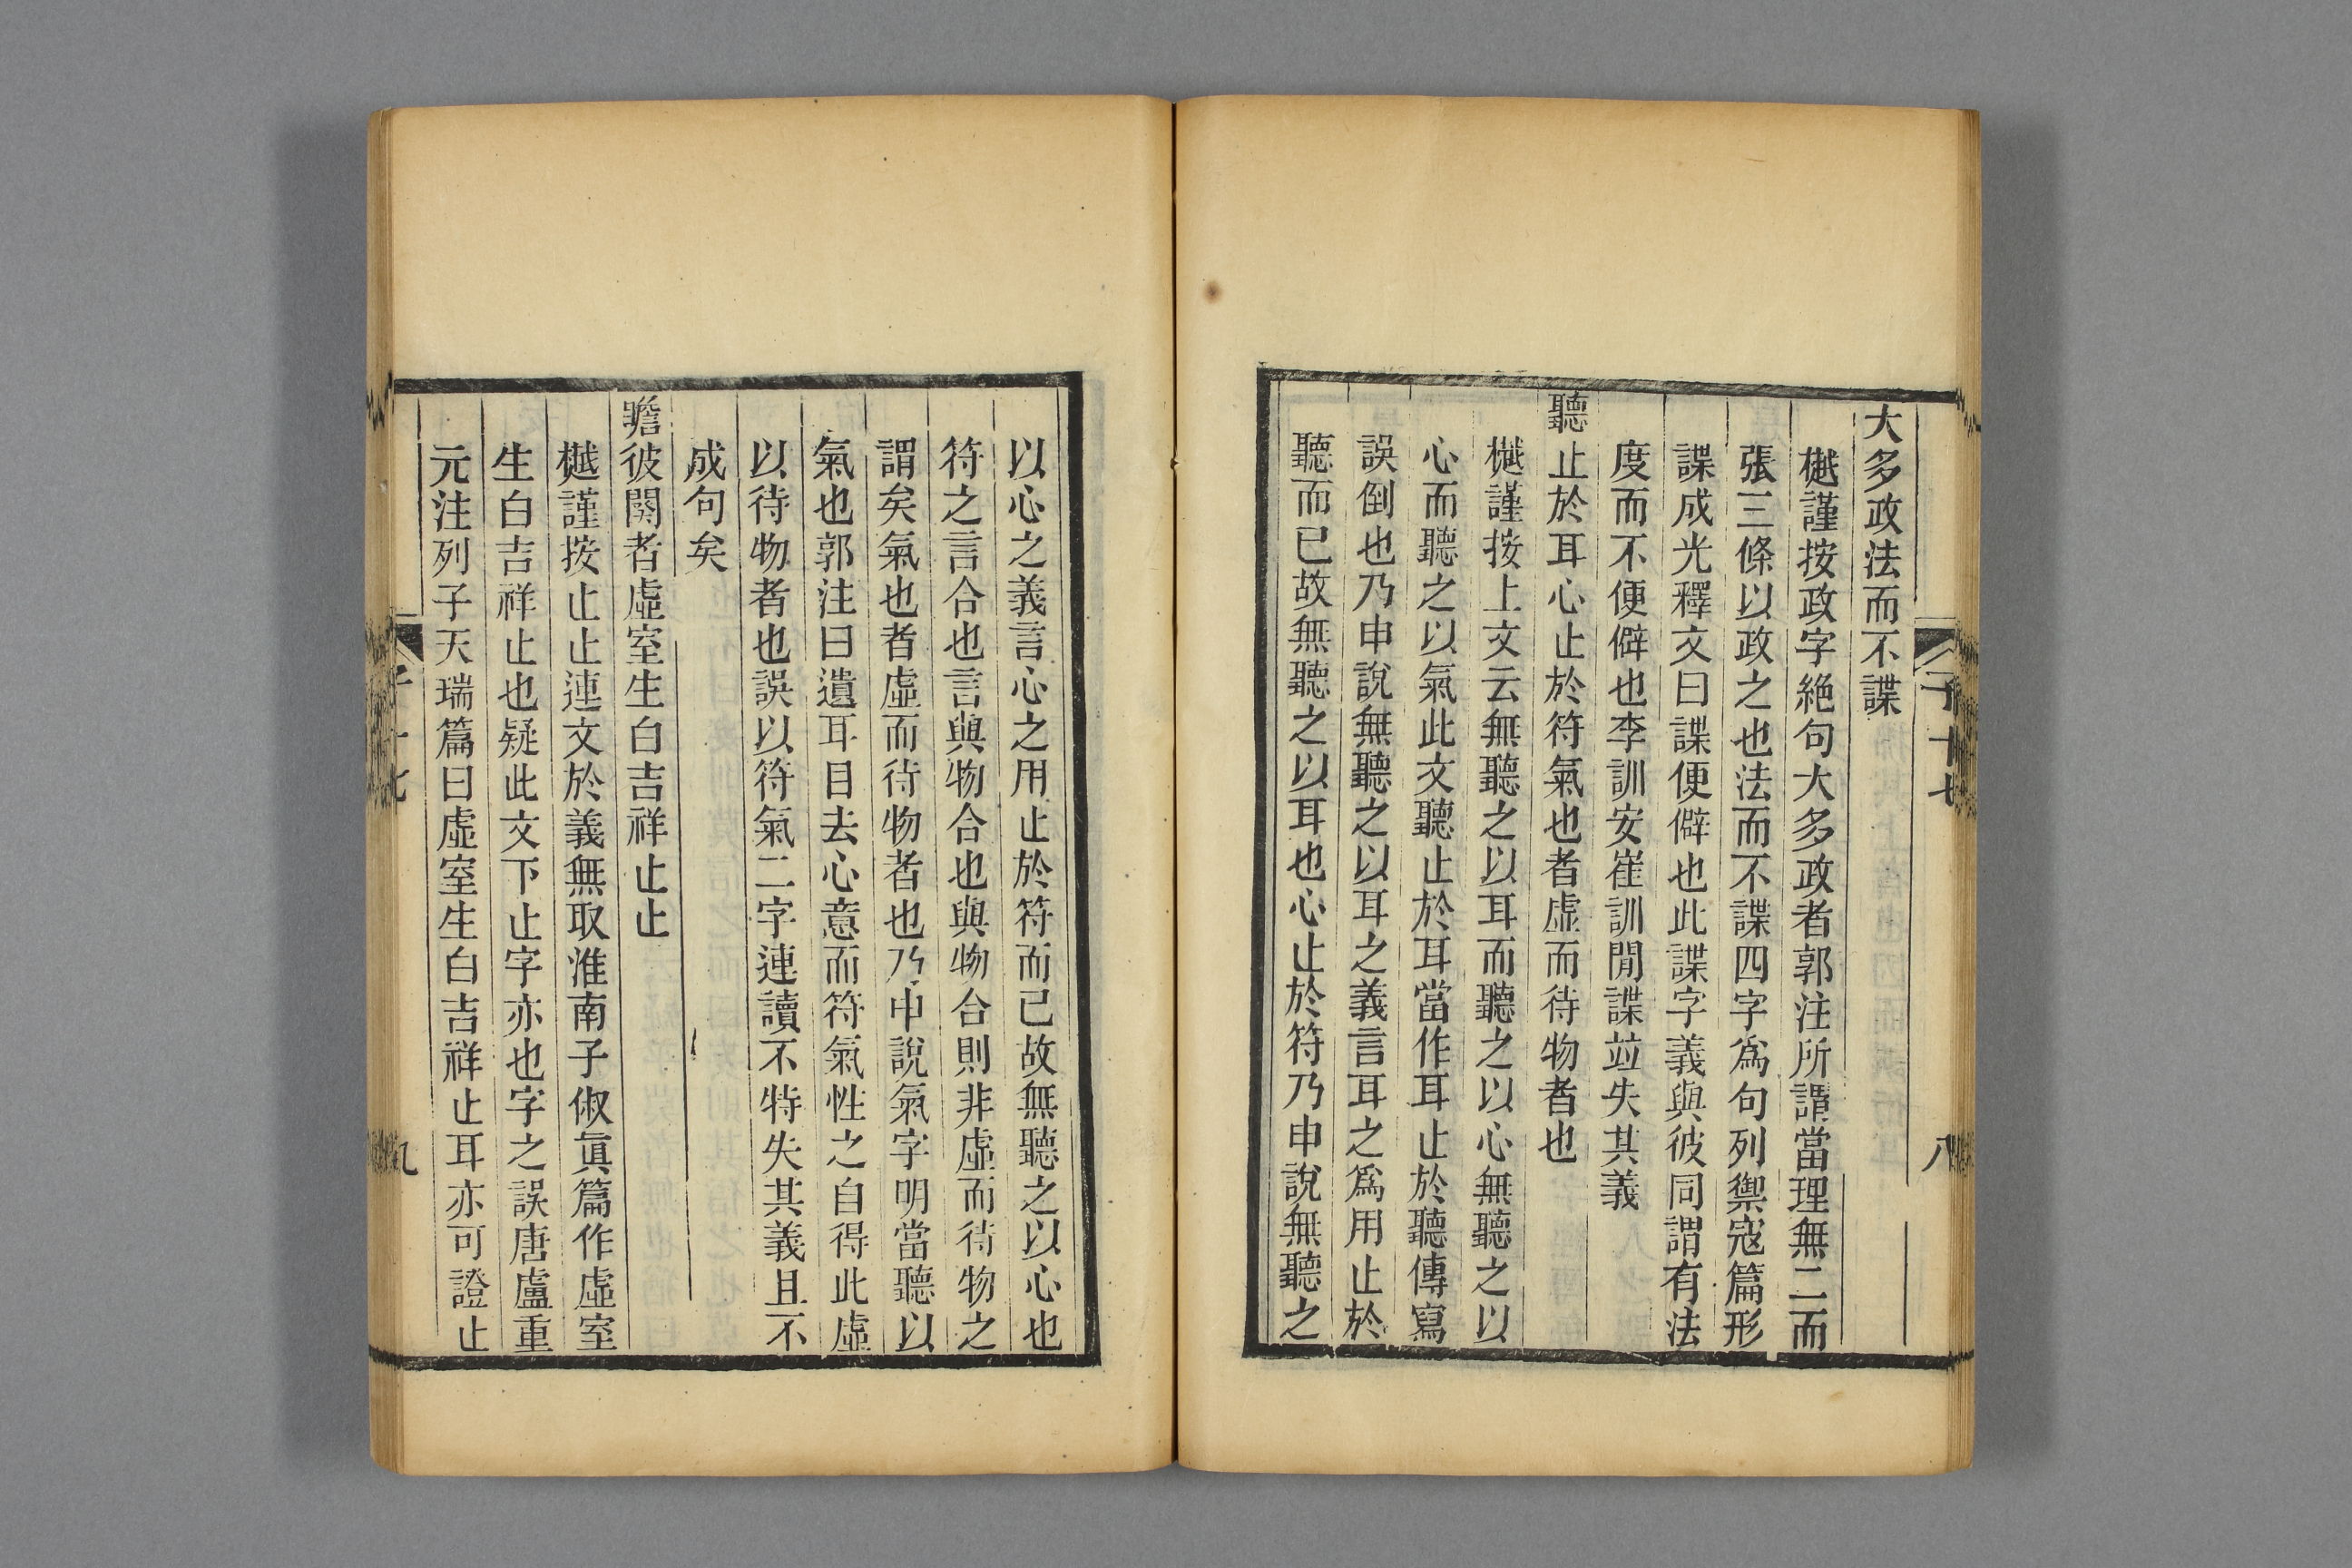 子十七
八
大多政法而不諜
樾謹按政字絕句大多政者郭注所謂當理無二而
張三條以政之也法而不諜四字爲句列禦寇篇形
諜成光釋文曰諜便僻也此諜字義與彼同謂有法
度而不便僻也李訓安崔訓閒諜竝失其義
聽止於耳心止於符氣也者虛而待物者也
樾謹按上文云無聽之以耳而聽之以心無聽之以
心而聽之以氣此文聽止於耳當作耳止於聽傳寫
誤倒也乃申說無聽之以耳之義言耳之爲用止於
聽而已故無聽之以耳也心止於符乃申說無聽之
以心之義言心之用止於符而已故無聽之以心也
符之言合也言與物合也與物合則非虛而待物之
謂矣氣也者虛而待物者也乃申說氣字明當聽以
氣也郭注曰遺耳目去心意而符氣性之自得此虛
以待物者也誤以符氣二字連讀不特失其義且不
成句矣
瞻彼闋者虛室生白吉祥止止
樾謹按止止連文於義無取淮南子俶眞篇作虛室
生白吉祥止也疑此文下止字亦也字之誤唐盧重
元注列子天瑞篇曰虛室生白吉祥止耳亦可證止
子十七
九